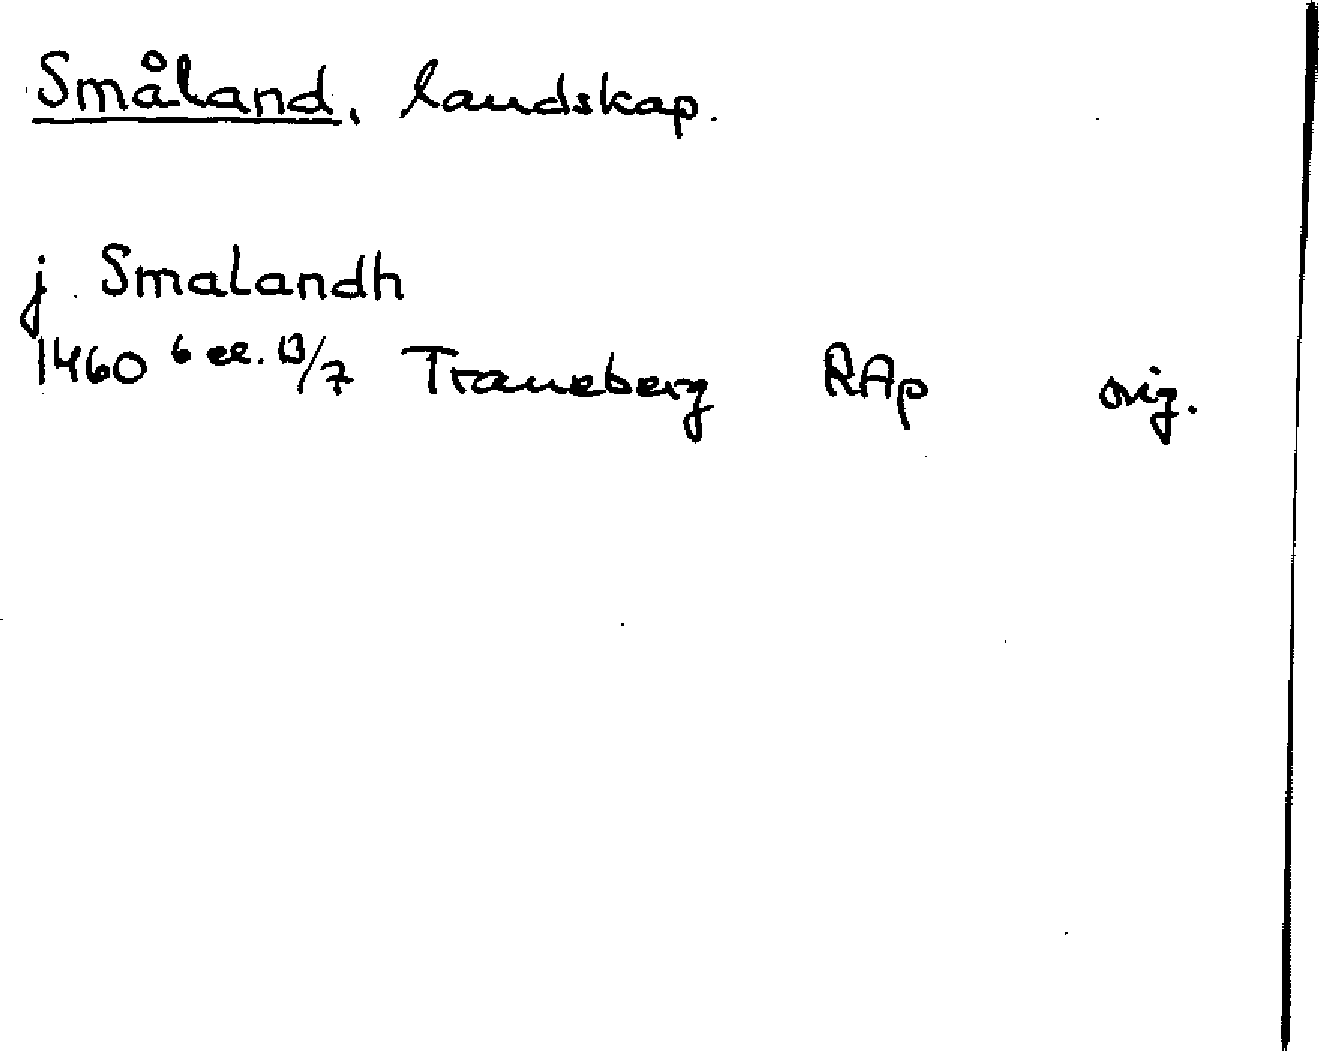 Småland, landskap.
j Smalandh
1460 6 el. 13/7 Traneberg RAp orig.